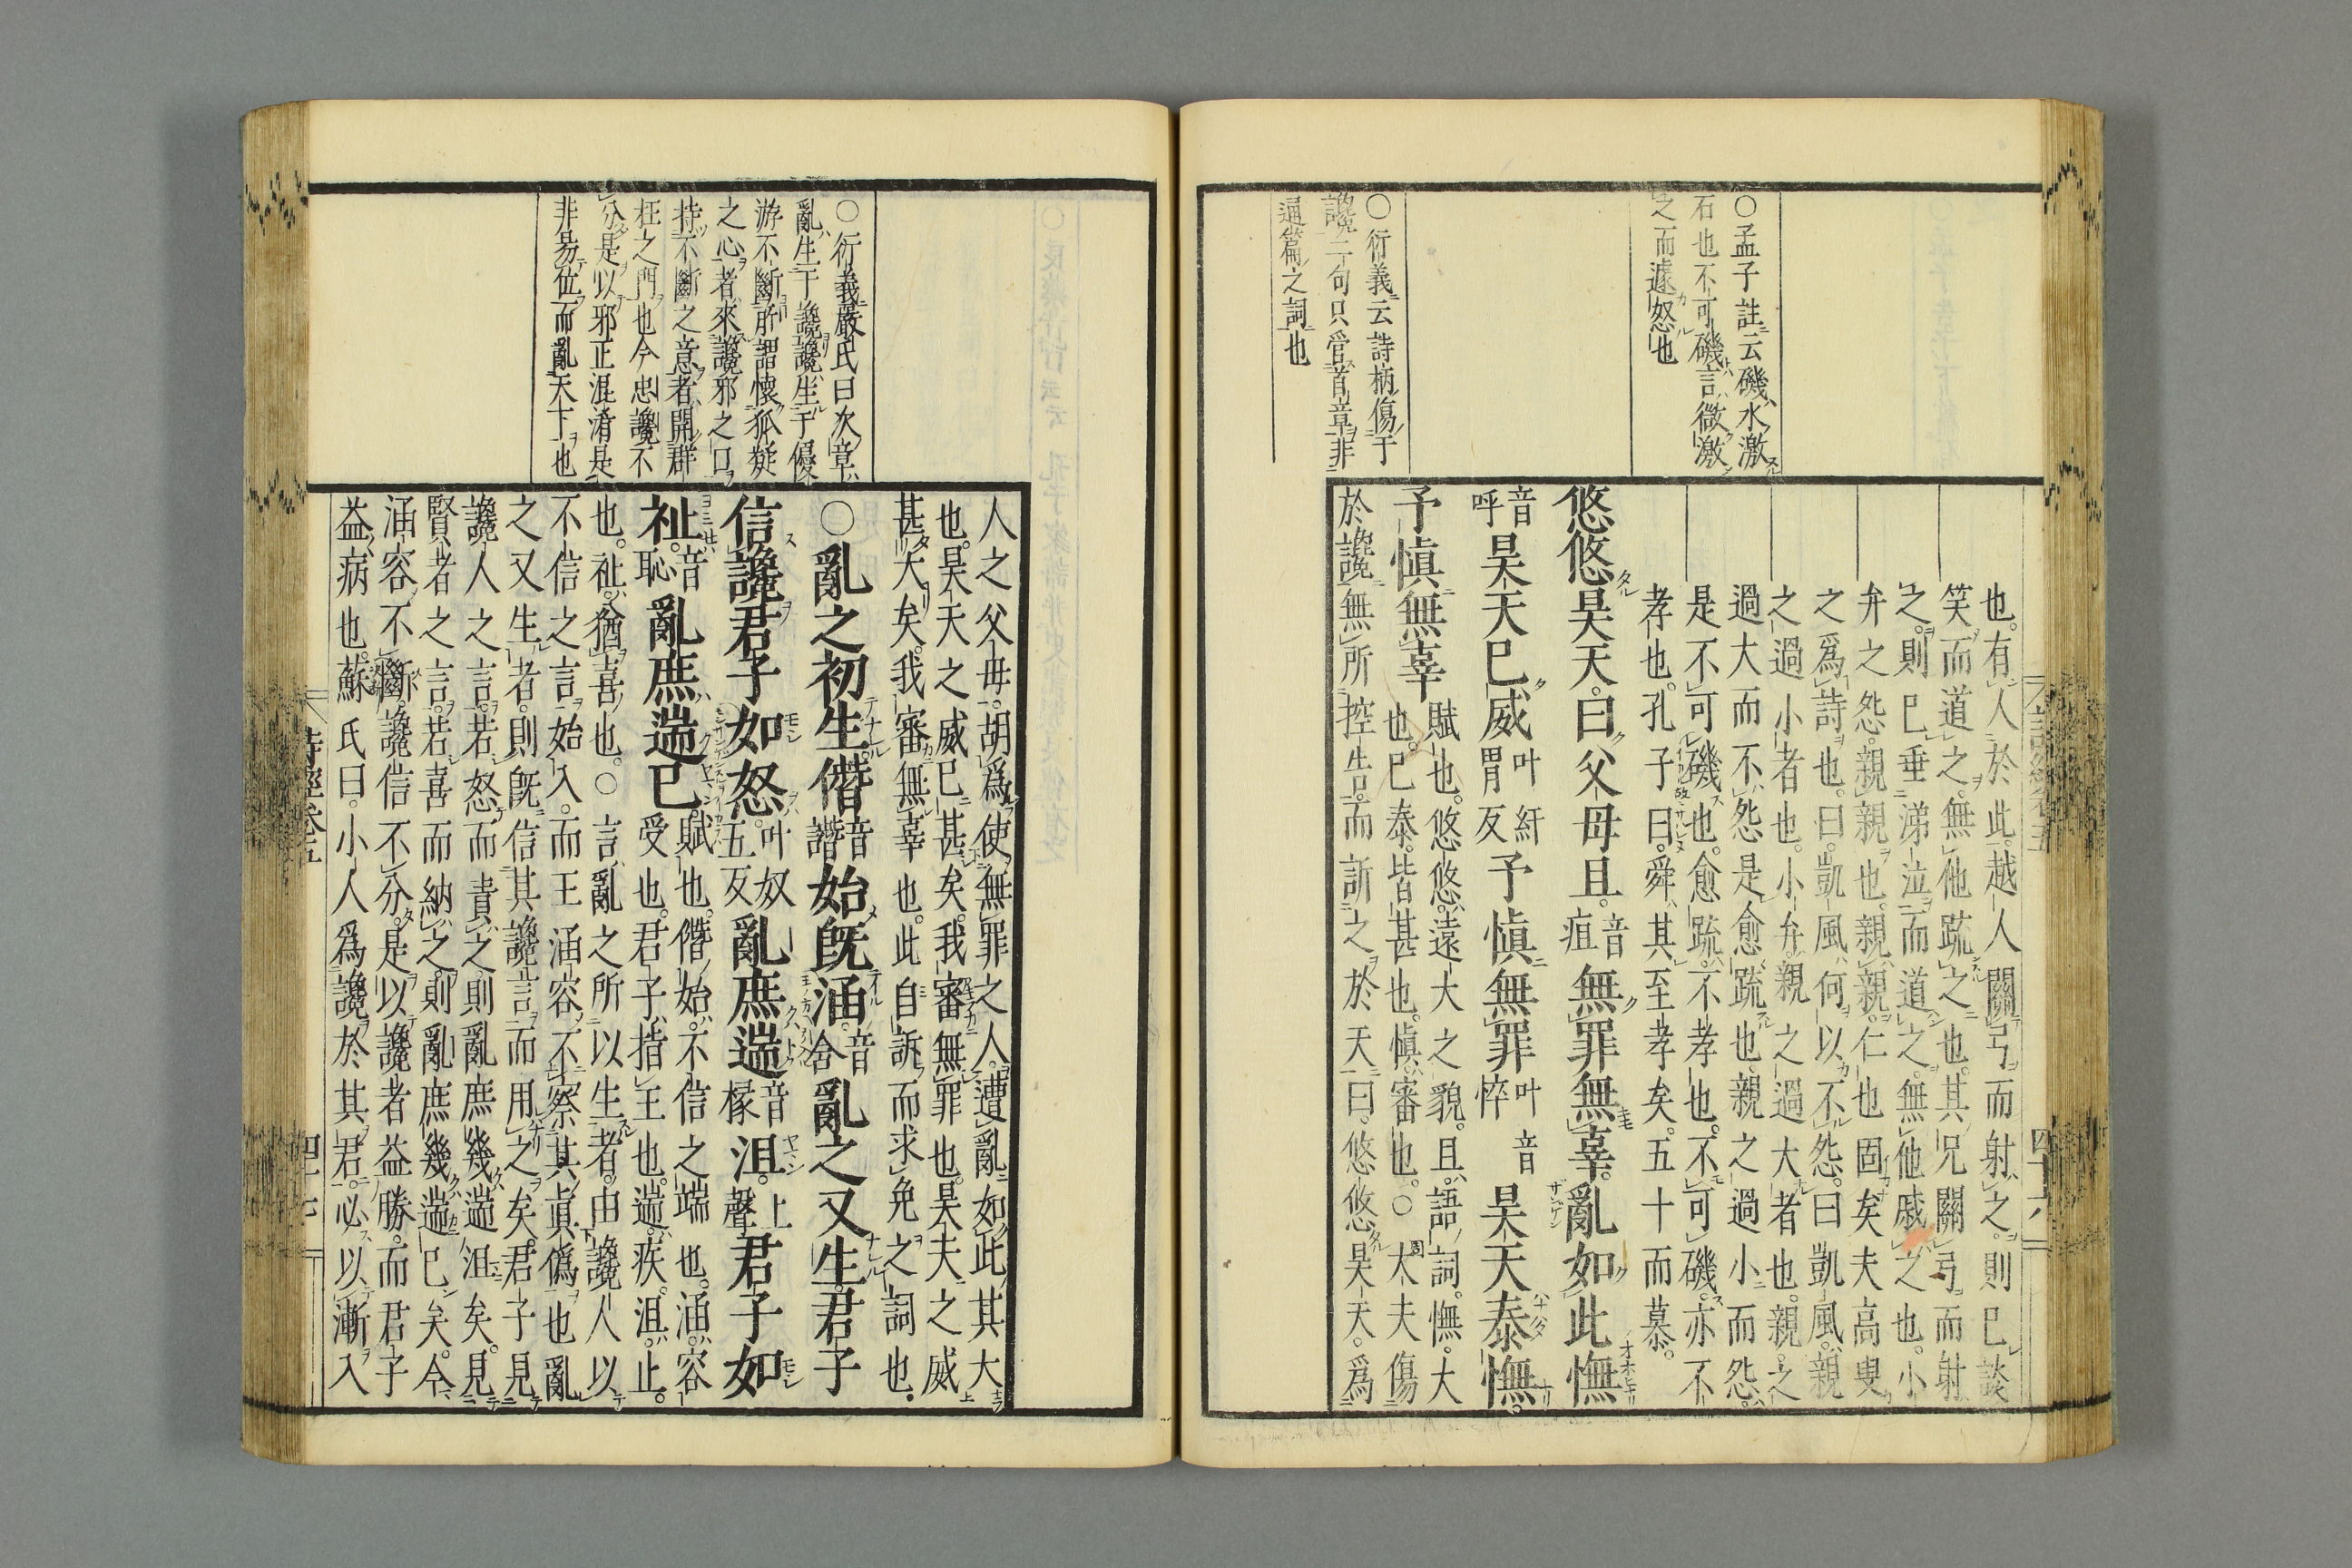 ○孟子註云磯水激
石也不可磯言微激
之而遽怒也
○衍義云詩柄傷于
讒二句只管首章非
通篇之詞也
也。有人於此。越人關弓而射之。則已談
笑而道之。無他疏之也。其兄關弓而射
之。則已垂涕泣而道之。無他戚之也。小
弁之怨。親親也。親親。仁也固矣夫高叟
之爲詩也。曰。凱風何以不怨。曰凱風。親
之過小者也。小弁。親之過大者也。親之
過大而不怨。是愈疏也。親之過小而怨。
是不可磯也。愈疏。不孝也。不可磯。亦不
孝也。孔子曰。舜其至孝矣。五十而慕。
悠悠昊天。曰父母且。音疽無罪無辜。亂如此憮
音呼昊天已威叶紆胃反予愼無罪叶音悴昊天泰憮。
予愼無辜賦也。悠悠。遠大之貌。且。語詞。憮。大
也。已泰。皆甚也。愼。審也。○大夫傷
於讒無所控告。而訴之於天曰。悠悠昊天。爲
○衍義嚴氏曰次章
亂生于讒讒生于優
游不斷所謂懷狐疑
之心者來讒邪之口
持不斷之意者開群
枉之門也今忠讒不
分是以邪正混淆是
非易位而亂天下也
人之父母。胡爲使無罪之人。遭亂如此其大
也。昊天之威已甚矣。我審無罪也。昊天之威
甚大矣。我審無辜也。此自訴而求免之詞也。
○亂之初生。僭音譖始旣涵。音含亂之又生。君子
信讒君子如怒。叶奴五反亂庶遄音椽沮。上聲君子如
祉。音恥亂庶遄已。賦也。僭始。不信之端也。涵。容
受也。君子。指王也。遄。疾。沮。止
也。祉。猶喜也。○言亂之所以生者。由讒人以
不信之言始入。而王涵容。不察其眞僞也亂
之又生者。則旣信其讒言而用之矣。君子見
讒人之言。若怒而責之。則亂庶幾遄沮矣。見
賢者之言。若喜而納之。則亂庶幾遄已矣。今
涵容不斷。讒信不分。是以讒者益勝。而君子
益病也。蘇氏曰。小人爲讒於其君。必以漸入
詩經卷五